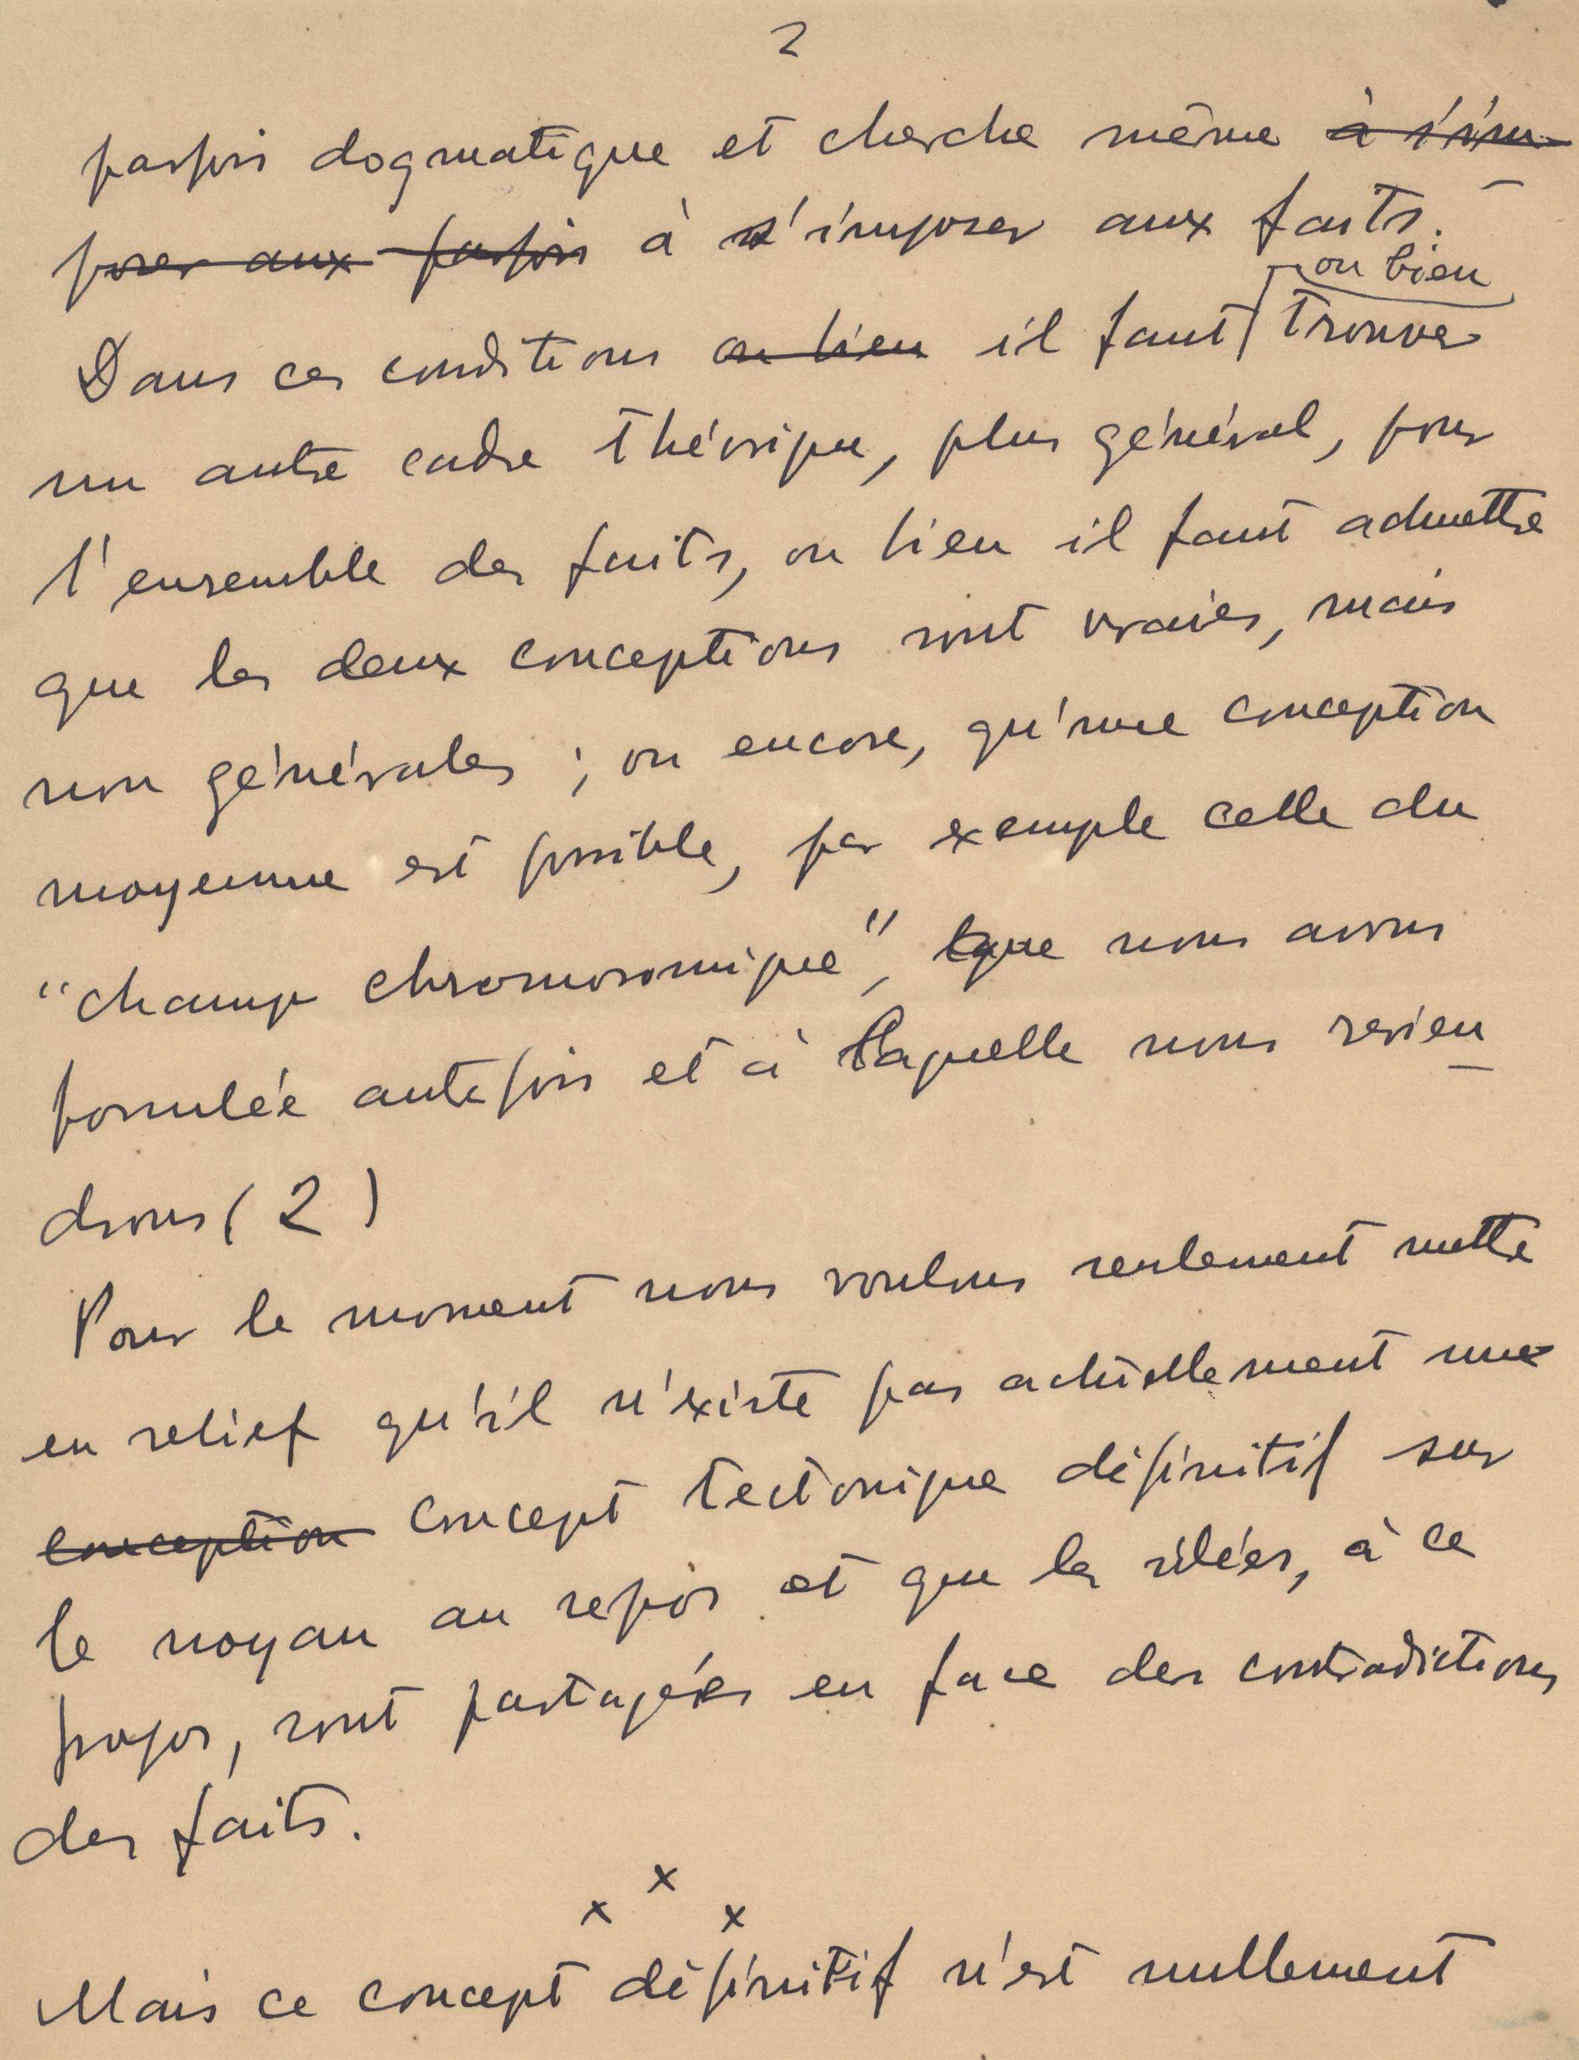 2
parfois dogmatique et cherche même à s'im
poser aux parfois à s'imposer aux faits.
ou bien
Dans ces conditions ou bien il faut trouver
un autre cadre théorique, plus général, pour
l'ensemble des faits, ou bien il faut admettre
que les deux conceptions sont vraies, mais
non générales ; ou encore, qu'une conception
moyenne est possible, par exemple celle du
"champ chromosomique", que nous avons
formulée autefois et à laquelle nous revien
drons (2)
Pour le moment nous voulons seulement mettre
en relief qu'il n'existe pas actuellement une
conception concept tectonique définitif sur
le noyau au repos et que les idées, à ce
propos, sont partagées en face des contradictions
des faits.
x x x
Mais ce concept définitif n'est nullement